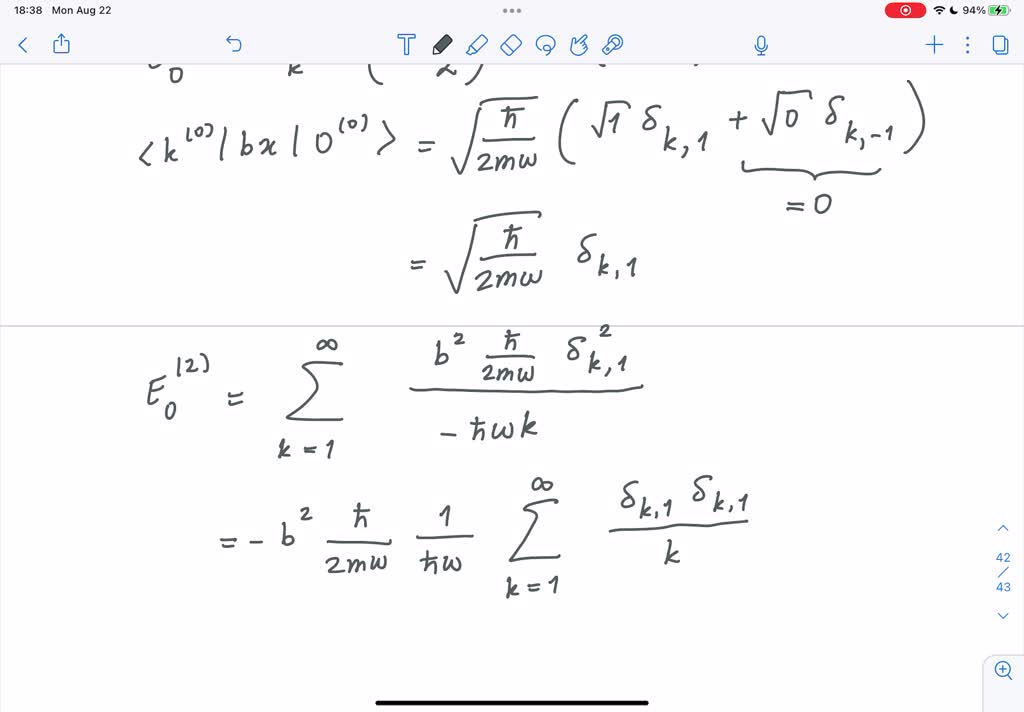 18:38 Mon Aug 22 94%
0 k ( 2 )
⟨k^(0)|bx|0^(0)⟩ = √(ħ/2mω) (√1 δ_k,1 + √0 δ_k,-1)
= 0
= √(ħ/2mω) δ_k,1
E_0^(2) = ∑_{k=1}^∞ (b² ħ/2mω δ²_k,1)/(-ħωk)
= - b² ħ/2mω 1/ħω ∑_{k=1}^∞ (δ_k,1 δ_k,1)/k
42
/
43